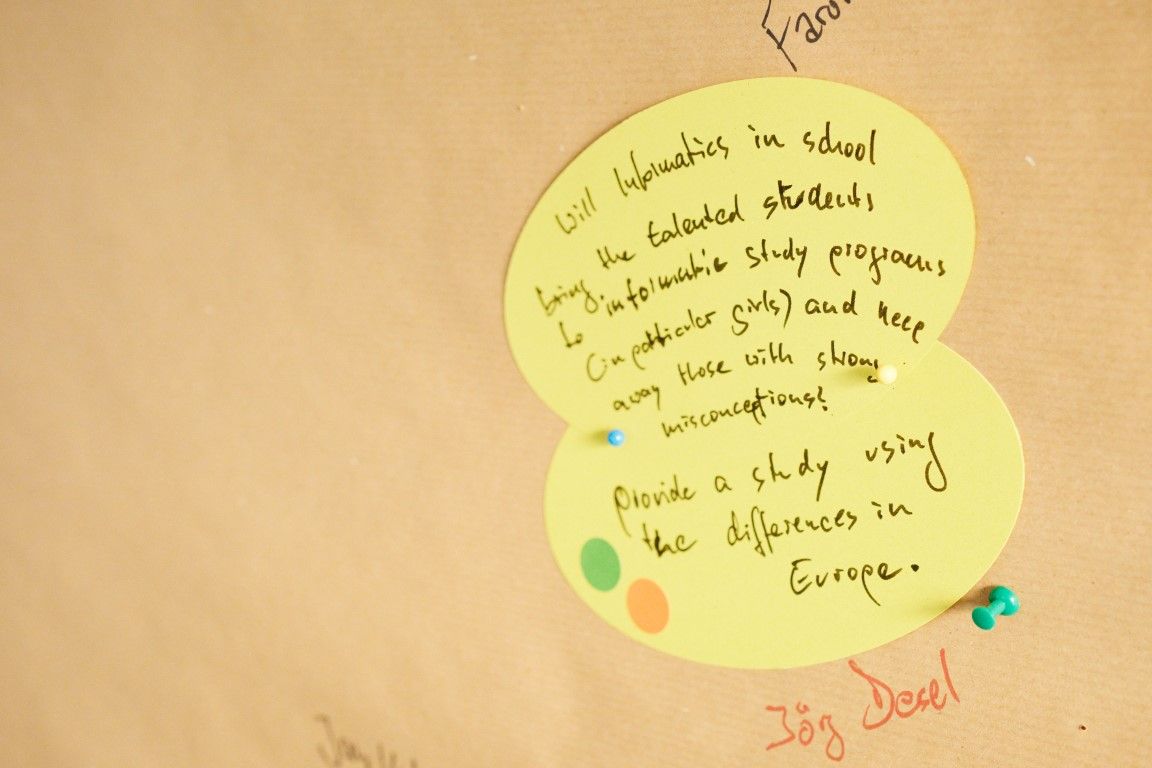 Will Informatics in school
bring the talented students
to informatic study programs
(in particular girls) and keep
away those with strong
misconceptions?
Provide a study using
the differences in
Europe.
Jörg Desel